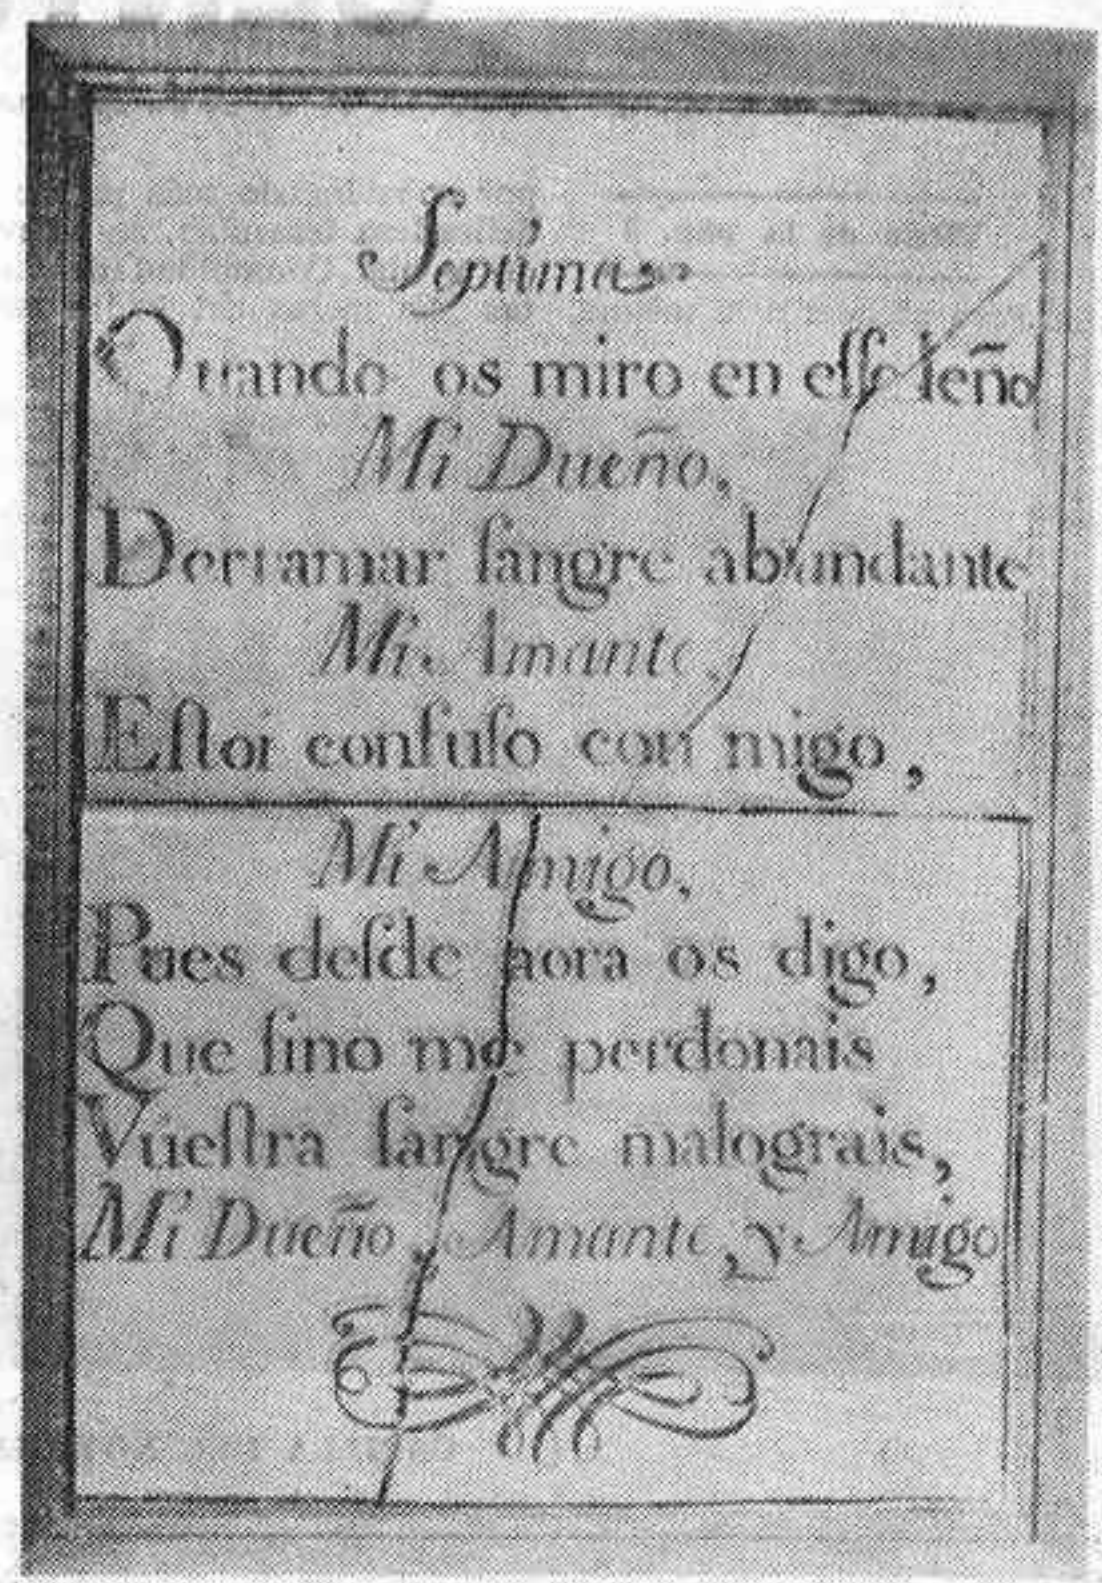 Septima
Quando os miro en eſſe leño
Mi Dueño,
Derramar ſangre abundante
Mi Amante,
Eſtoi confuſo con migo,
Mi Amigo,
Pues deſde aora os digo,
Que ſino me perdonais
Vueſtra ſangre malograis,
Mi Dueño, Amante, y Amigo